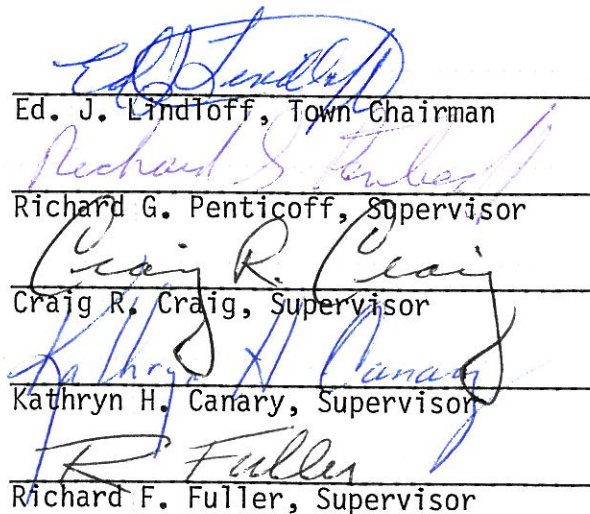 Ed J Lindloff
Ed. J. Lindloff, Town Chairman
Richard G Penticoff
Richard G. Penticoff, Supervisor
Craig R. Craig
Craig R. Craig, Supervisor
Kathryn H Canary
Kathryn H. Canary, Supervisor
R Fuller
Richard F. Fuller, Supervisor